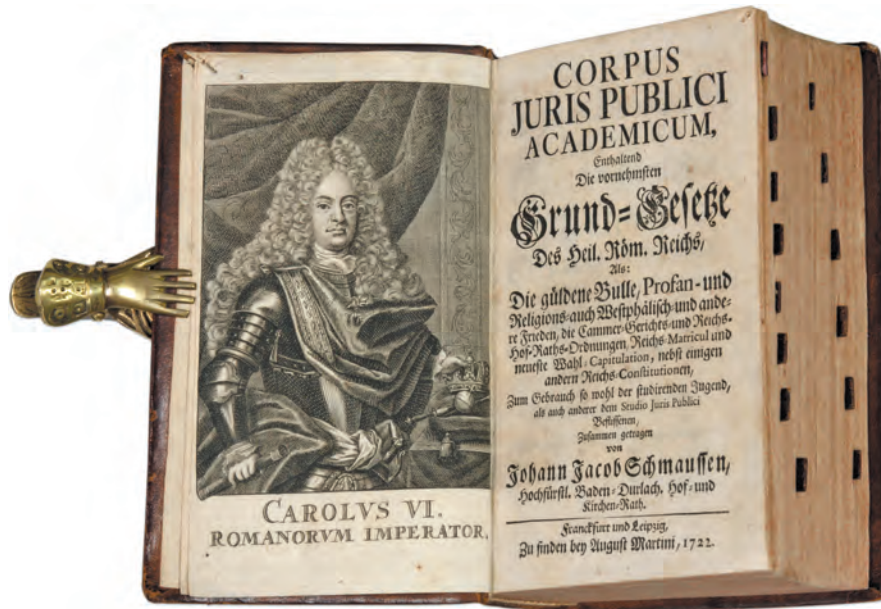 CAROLVS VI.
ROMANORVM IMPERATOR.
CORPUS
JURIS PUBLICI
ACADEMICUM,
Enthaltend
Die vornehmsten
Grund-Gesetze
Des Heil. Röm. Reichs,
Als:
Die güldene Bulle, Profan- und
Religions- auch Westphälisch- und ande-
re Frieden, die Cammer-Gerichts- und Reichs-
Hof-Raths-Ordnungen, Reichs Matricul und
neueste Wahl-Capitulation, nebst einigen
andern Reichs-Constitutionen,
Zum Gebrauch so wohl der studirenden Jugend,
als auch anderer dem Studio Juris Publici
Beflissenen,
Zusammen getragen
von
Johann Jacob Schmaussen,
Hochfürstl. Baden-Durlach. Hof- und
Kirchen-Rath.
Franckfurt und Leipzig,
Zu finden bey August Martini, 1722.